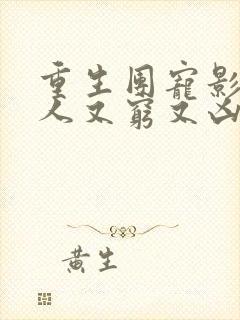 重生團寵影
人又窮又凶
黃生